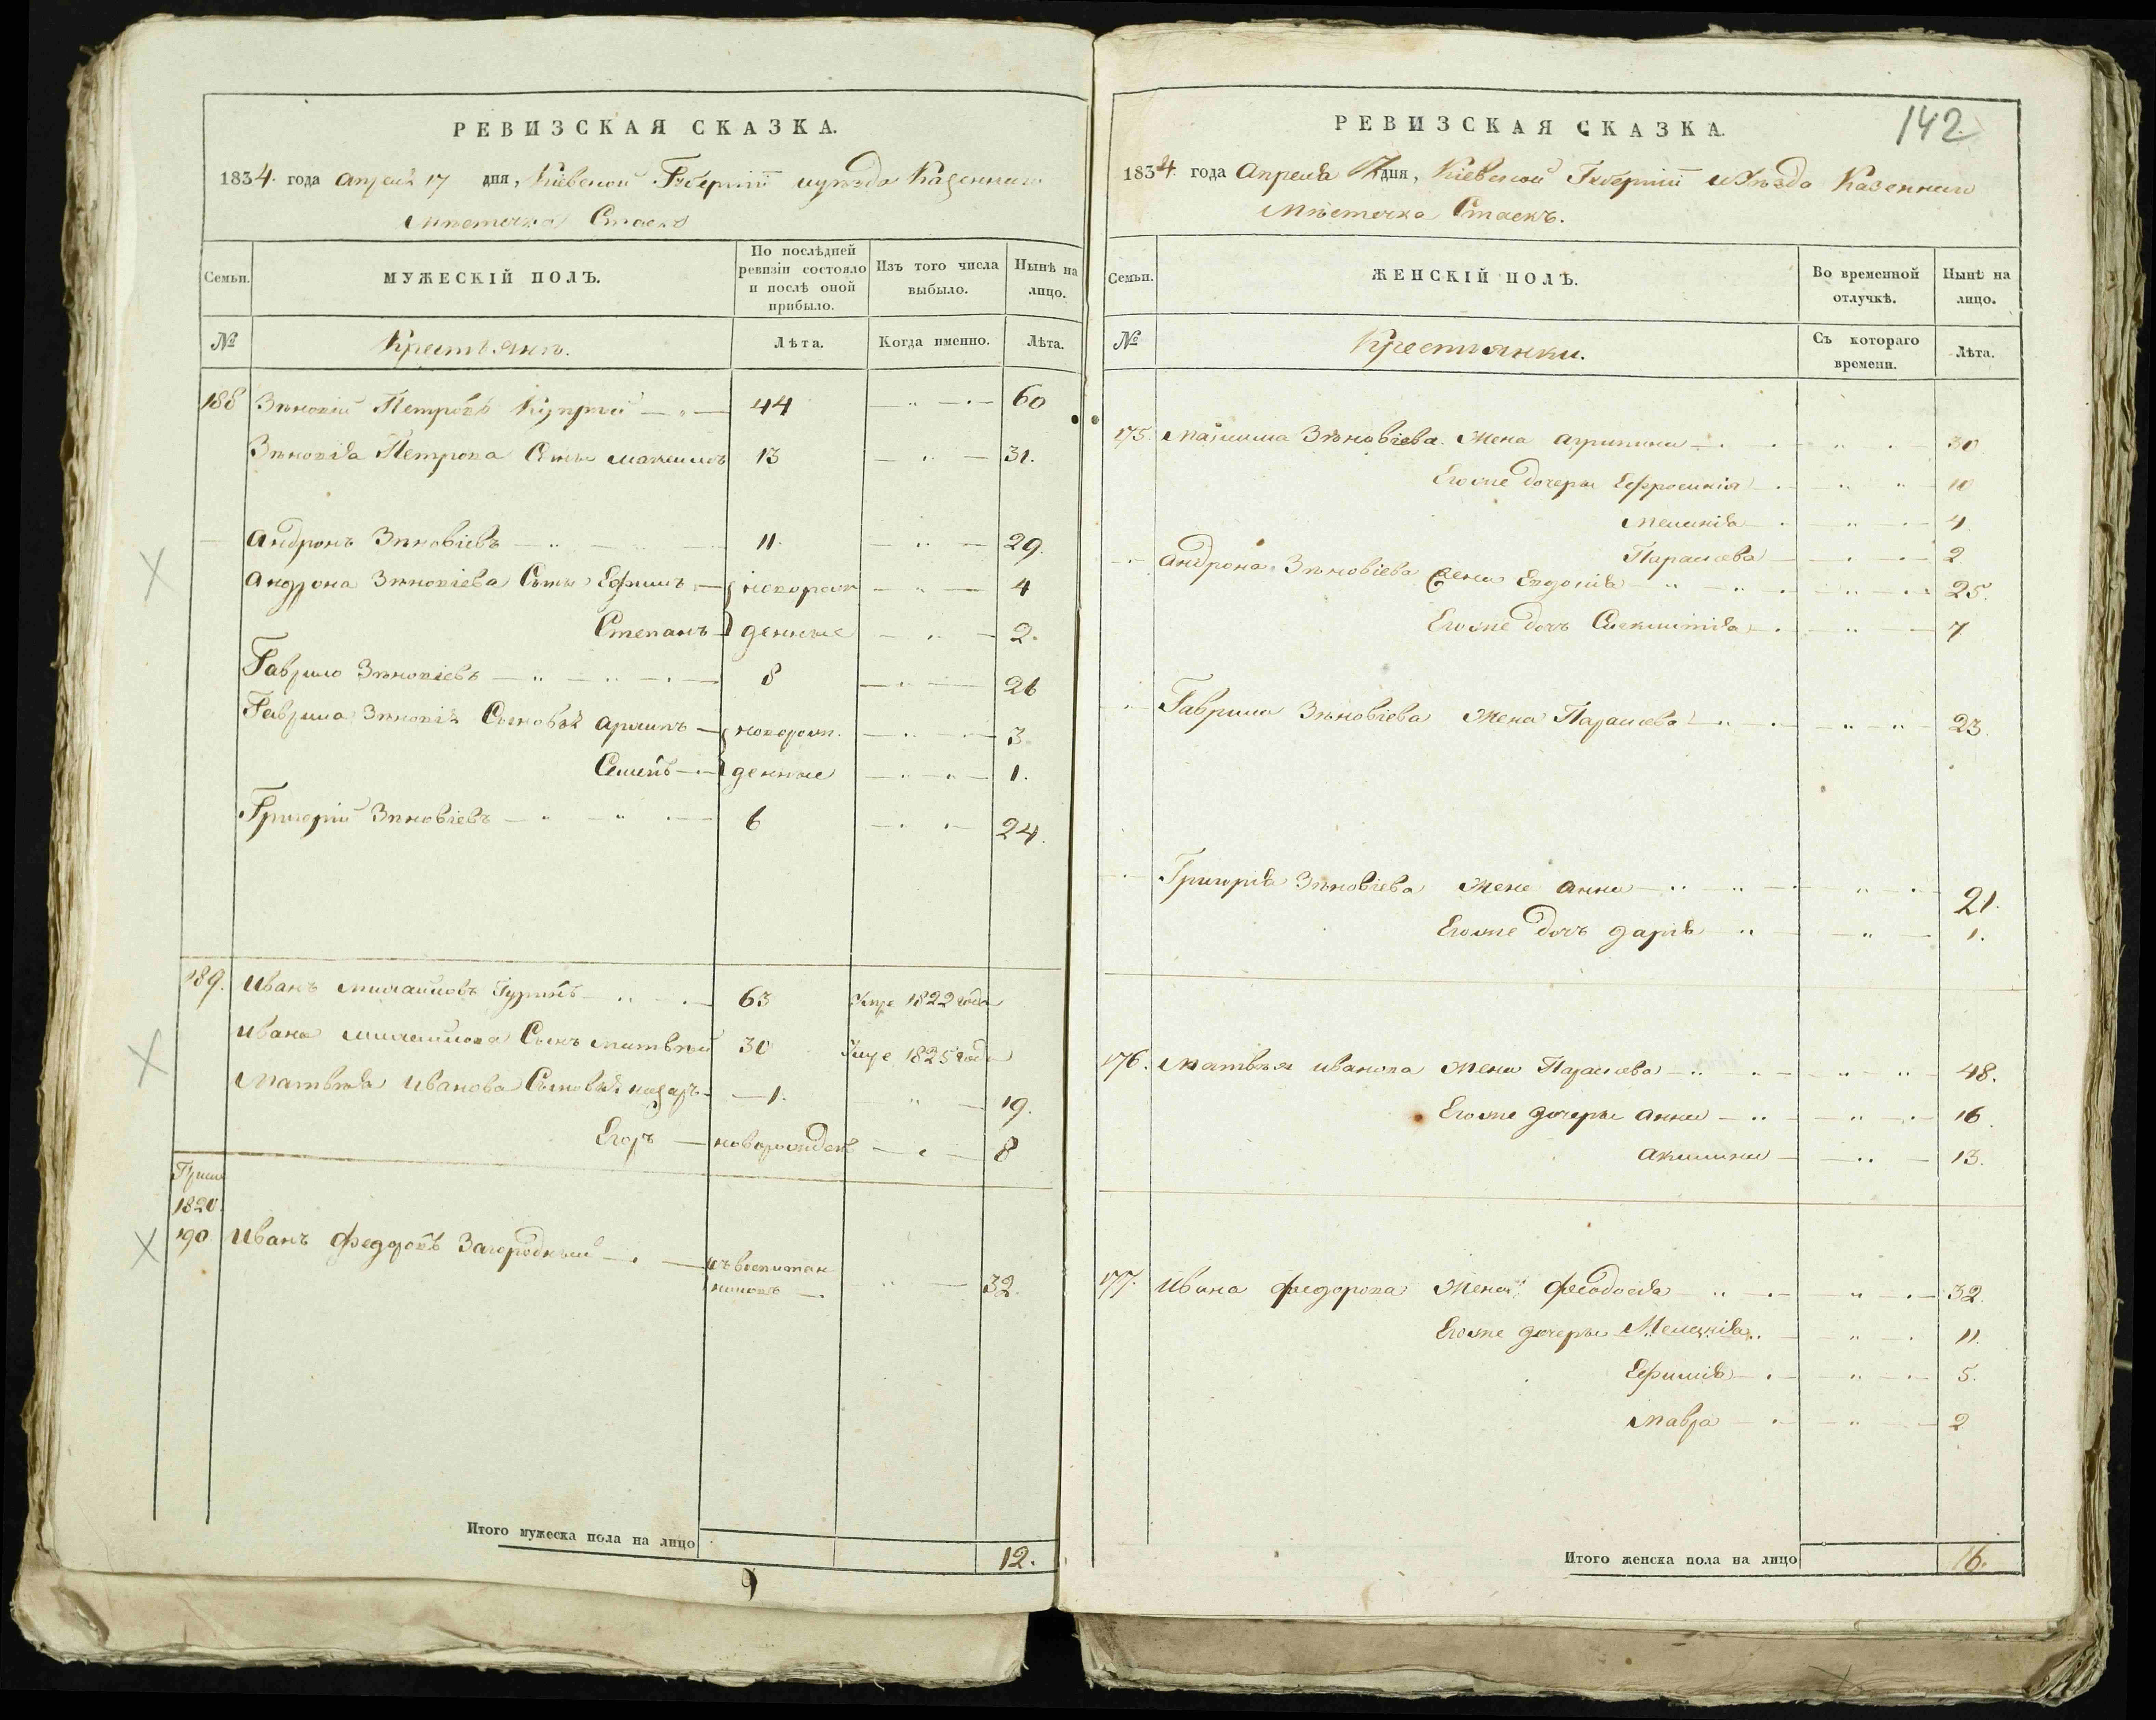 РЕВИЗСКАЯ СКАЗКА.
1834 года апреля 17 дня, Кіевской Губерніи и уѣзда Казеннаго
Мѣстечка Стаекъ
Семьи. МУЖЕСКІЙ ПОЛЪ. По послѣдней ревизіи состояло и послѣ оной прибыло. Изъ того числа выбыло. Нынѣ на лицо.
№ Крестьянъ. Лѣта. Когда именно. Лѣта.
188 Зѣновій Петровъ 44 60
Зѣновія Петрова Сыны Максимъ 13 31.
Андронъ Зѣновіевъ 11. 29.
Андрона Зѣновіева Сыны Ефимъ новорож 4
Степанъ денные 2.
Гаврило Зѣновіевъ 8 26
Гаврила Зѣновія Сыновья новорож. 3.
Семенъ денные 1.
Григорій Зѣновіевъ 6 24.
189. Иванъ Михайловъ 63 Умре 1822 года
Ивана Михайлова Сынъ Матвѣй 30 Умре 1825 года
Матвѣя Иванова Сыновья Назаръ 1. 19.
Егоръ новорожден 8
1820.
190 Иванъ Федоровъ Загородный изъ воспитан
никовъ 32.
Итого мужеска пола на лицо 12.
142
РЕВИЗСКАЯ СКАЗКА.
1834 года Апреля 17 дня, Кіевской Губерніи и Уѣзда Казеннаго
Мѣстечка Стаекъ.
Семьи. ЖЕНСКІЙ ПОЛЪ. Во временной отлучкѣ. Нынѣ на лицо.
№ Крестьянки. Съ котораго времени. Лѣта.
175. Максима Зѣновіева Жена Агрипина 30.
Егоже дочери Ефросинія 10
Меланія 4.
Парасковa 2.
Андрона Зѣновіева Жена Евдокія 25.
Егоже дочь 7
Гаврила Зѣновіева Жена Параскева 23.
Григорія Зѣновіева Жена Анна 21.
Егоже дочь Дарія 1.
176. Матвѣя Иванова Жена Параскева 48.
Егоже дочери Анна 16.
Акилина 13.
177. Ивана Федорова Жена Феодосія 32.
Егоже дочери Меланія 11.
Ефимія 5.
Мавра 2
Итого женска пола на лицо 16.